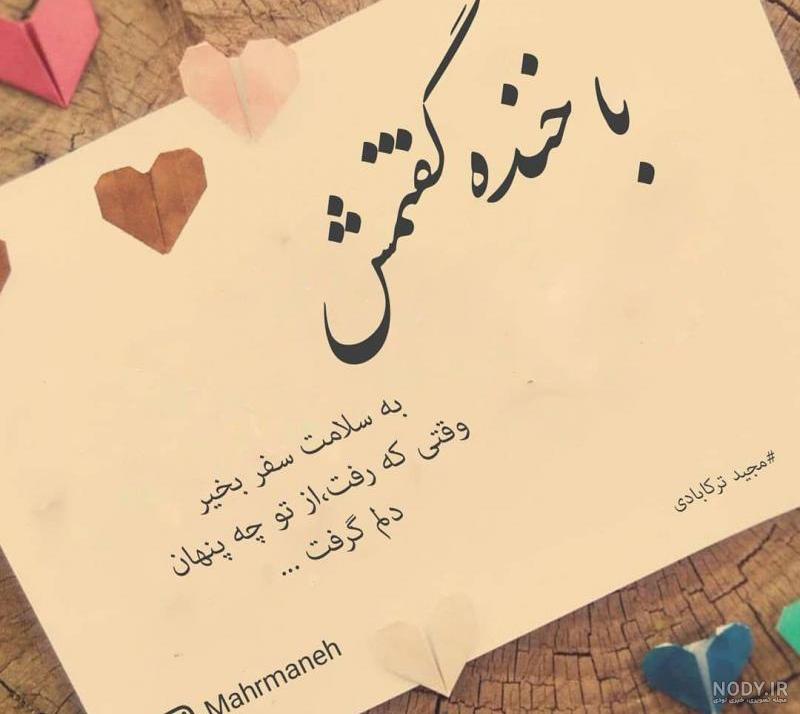 با خنده گفتمش
به سلامت سفر بخیر
وقتی که رفت،از تو چه پنهان
دلم گرفت ...
#مجید ترکابادی
Mahrmaneh
NODY.IR
مجله تصویری، خبری نودی